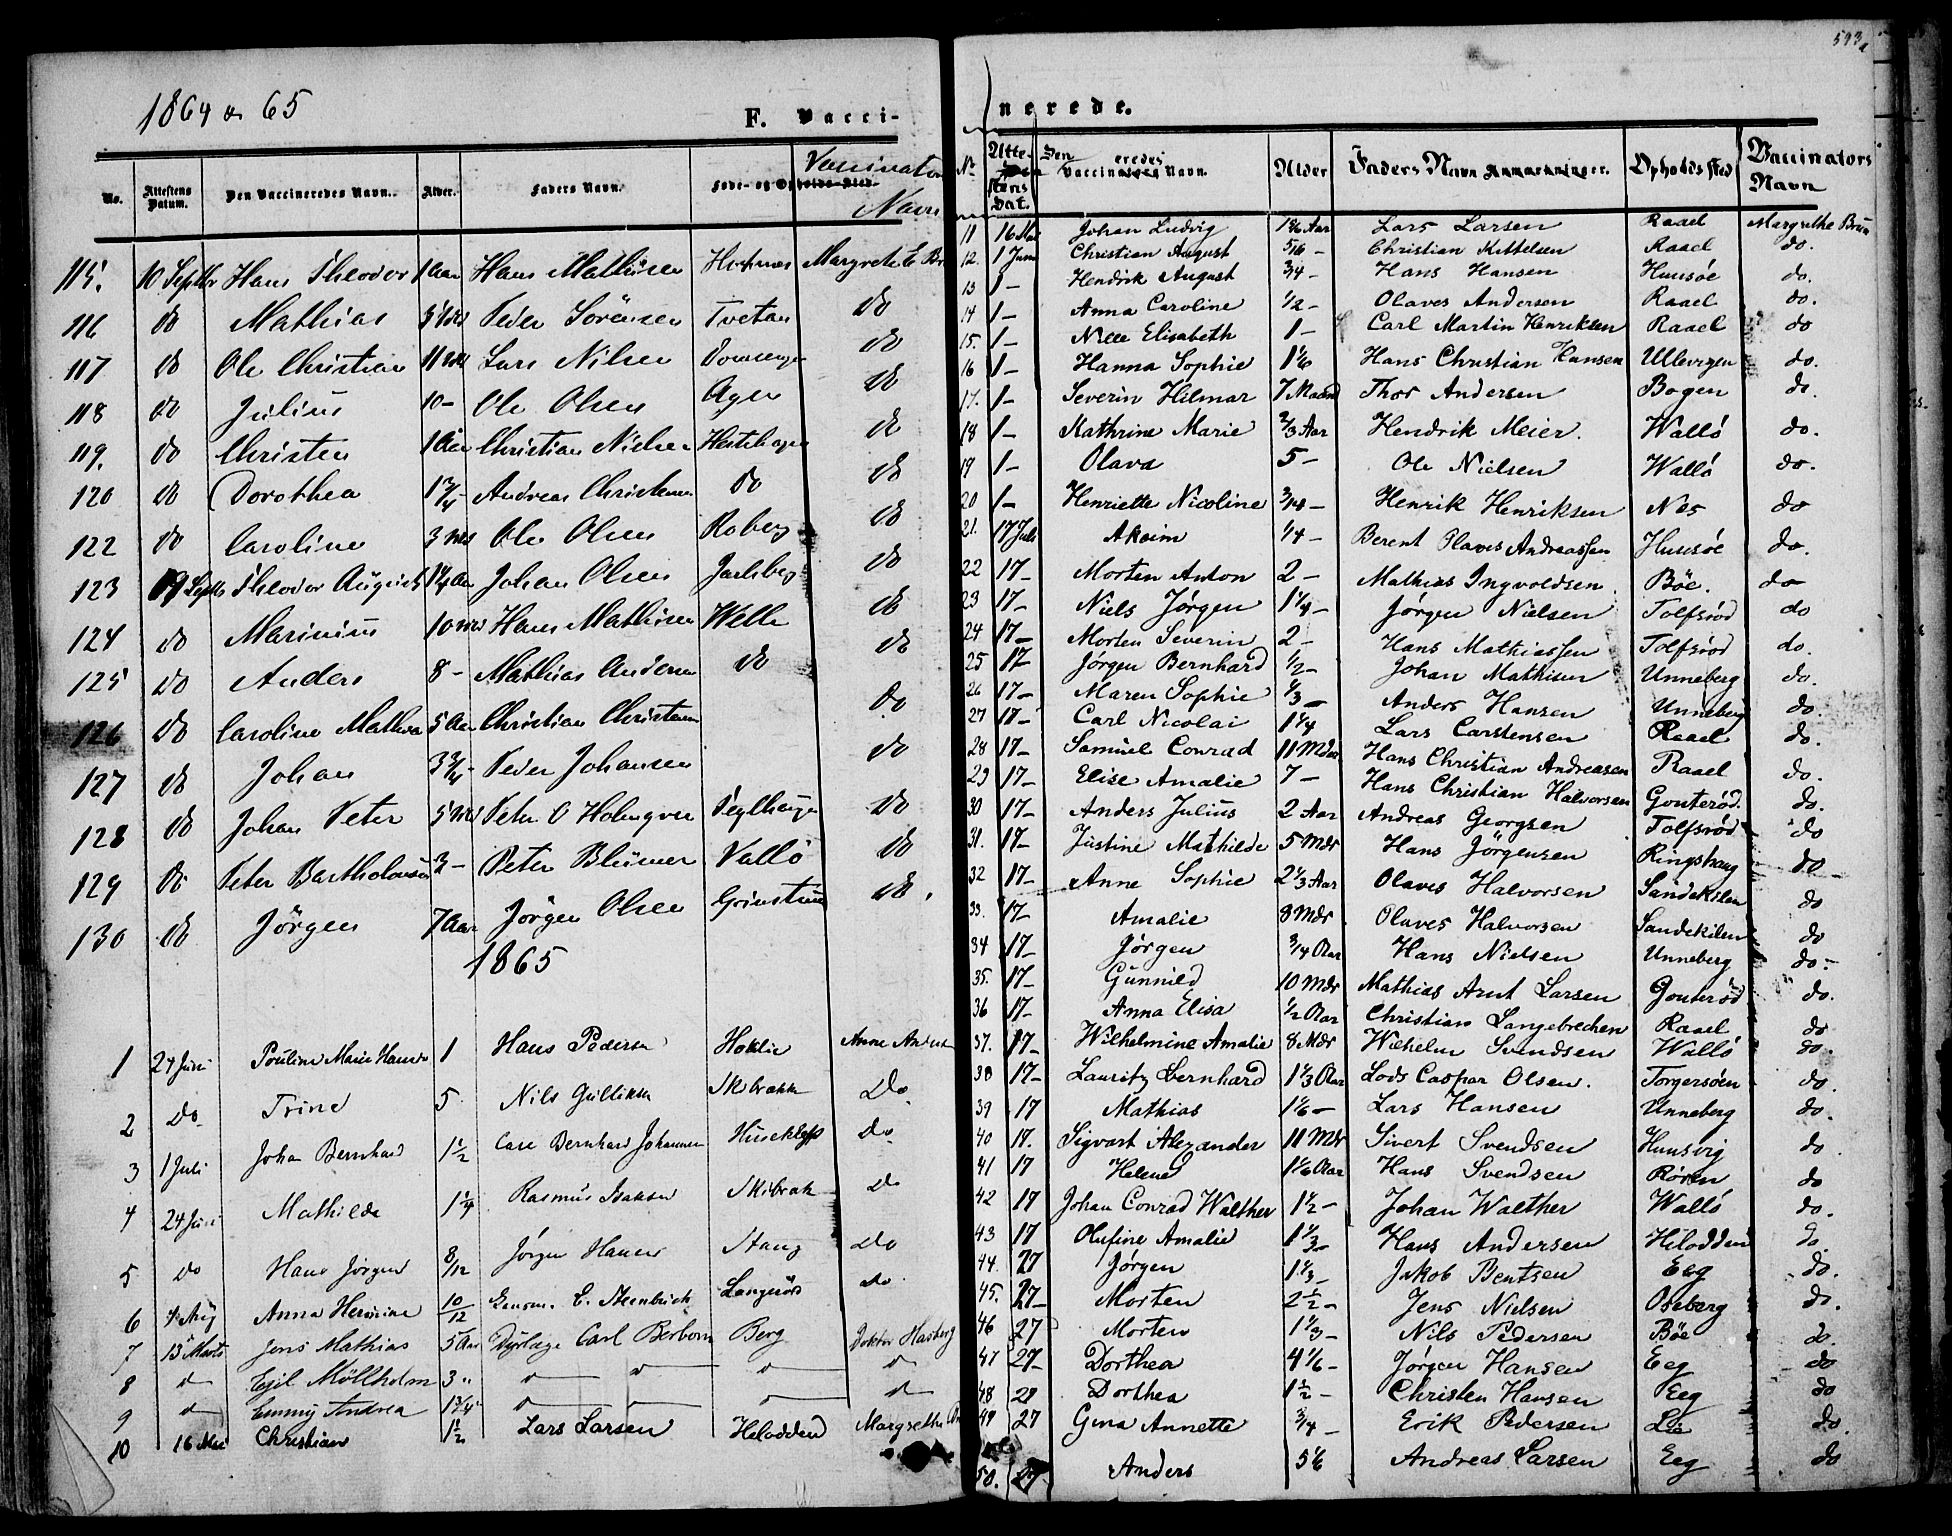 1864 & 65
F. Vacci-
No. Attestens Datum. Den Vaccineredes Navn. Alder. Faders Navn. Føde- og Opholds-Sted. Vaccinators Navn
115. 10 Septbr Hans Theodor 1 Aar Hans Mathisen Margrethe
116 do Mathias 5 Peder Sörensen Tvetan do
117 do Ole Christian 11 Mds Lars Nilsen do
118 do Julius 10 – Ole Olsen Agen do
119. do Christen 1 Aar Christian Nielsen Hestehagen do
120 do Dorothea 1 3/4 – Andreas Christensen do do
122 do Caroline 3 Mds Ole Olsen Roberg do
123 19 Septbr Theodor August 1 1/4 Aar Johan Olsen Jarlsberg do
124 do Marinius 10 Mds Hans Mathisen Welle do
125 do Anders 8 – Mathias Andersen do do
126 do Caroline Mathea 5 Aar Christian Christensen do
127 do Johan 3 3/4 – Peder Johansen do
128 do Johan Peter 5 Mds Peter O Holmgren Teglhagen do
129 do Peter Bartholomæus 3 – Peter Blümer Vallö do
130 do Jörgen 7 Aar Jörgen Olsen Grimstun do.
1865
1 24 Juni Pouline Marie 1 Hans Pedersen Anne
2 do Trine 5 Nils Gulliksen Do
3 1 Juli Johan Bernhard 1 1/2 Carl Bernhard Johannesen Do
4 24 Juni Mathilde 1 1/4 Rasmus Isaksen Do
5 do Hans Jörgen 8/12 Jörgen Hansen Stang Do
6 4 Aug Anna 10/12 C. Steenbuch do.
7 13 Marts Jens Mathias 5 Aar Dyrlæge Carl Berg Doktor
8 Egil Möllholm 3 "
9 Emmy Andrea 1 3/4
10 16 Mai Christian 1 1/2 Lars Larsen Helodden Margrethe
593
nerede.
No Atte-stens Dat. Den Vaccineredes Navn. Alder Faders Navn Anmærkninger. Opholdssted Vaccinators Navn
11 16 Mai Johan Ludvig 1 5/6 Aar Lars Larsen Raael Margrethe Brun
12. 1 Juni Christian August 5/6 – Christian Kittelsen Raael do.
13 1 – Hendrik August 3/4 – Hans Hansen Huusöe do.
14 1 – Anna Caroline 1/2 – Olaves Andersen Raael do.
15. 1 – Nille Elisabeth 1 – Carl Martin Henriksen Raael do
16 1 – Hanna Sophie 1 1/6 Hans Christian Hansen Ullevigen do.
17. 1 – Severin Hilmar 7 Maaned Thor Andersen Bogen do.
18 1 – Kathrine Marie 2/3 Aar Hendrik Meier. Wallö do.
19 1 – Olava 5 – Ole Nielsen Wallö do.
20 1 – Henriette Nicoline 3/4 – Henrik Henriksen Nes do
21. 17 Juli Akeim 1/4 – Berent Olaves Andreassen Huusöe do.
22 17 – Morten Anton 2 – Mathias Ingvoldsen. Böe. do
23 17 – Niels Jörgen 1 1/4 – Jörgen Nielsen Tolfsröd do
24 17 – Morten Severin 2 – Hans Mathiassen Tolfsröd do.
25 17 Jörgen Bernhard 1/2 – Johan Mathisen Unneberg do.
26 17 – Maren Sophie 1/3 – Anders Hansen Unneberg do
27 17 – Carl Nicolai 1 1/4 Lars Carstensen Raael do.
28 17 – Samuel Conrad 11 Mdr Hans Christian Andreasen Raael do.
29 17 – Elise Amalie 7 – Hans Christian Halvorsen Gonteröd do.
30 17 – Anders Julius 2 Aar Andreas Georgsen Tolfsröd do
31. 17 – Justine Mathilde 5 Mdr Hans Jörgensen Ringshaug do
32 17 – Anne Sophie 2 1/3 Aar Olaves Halvorsen Sandekilen do
33. 17 – Amalie 8 Mdr Olaves Halvorsen Sandekilen do
34 17 – Jörgen 3/4 Aar Hans Nielsen Unneberg do.
35. 17 – Gunnild 10 Mdr Mathias Arnt Larsen Gonteröd do.
36 17 – Anna Elisa 1/2 Aar Christian Langebrechen Raael do
37. 17 – Wilhelmine Amalie 8 Mdr Wilhelm Svendsen Wallö do.
38 17 – Lauritz Bernhard 1 1/3 Aar Lods Caspar Olsen. Torgersöen do.
39 17 Mathias 1 1/6 – Lars Hansen Unneberg do.
40 17. Sigvart Alexander 11 Mdr Sivert Svendsen Huusvig do
41 17 Helene 1 1/6 Aar Hans Svendsen Rören do
42 17 Johan Conrad Walther 1 1/2 – Johan Walther Wallö do.
43 17 Olufine Amalie 1 1/3 – Hans Andersen Helodden do.
44. 27 Jörgen 1 1/3 – Jakob Bentsen Eeg do.
45. 27 – Morten 2 1/2 – Jens Nielsen Oseberg do.
46 27 Morten 1 1/3 – Nils Pedersen Böe do.
47 27 – Dorthea 4 1/6 – Jörgen Hansen Eeg do
48 27 Dorthea 1 1/2 – Christen Hansen Eeg do
49 27 Gina Annette 3/4 – Erik Pedersen Lie do.
50. 27 Anders 5/6 Andreas Larsen Eeg do